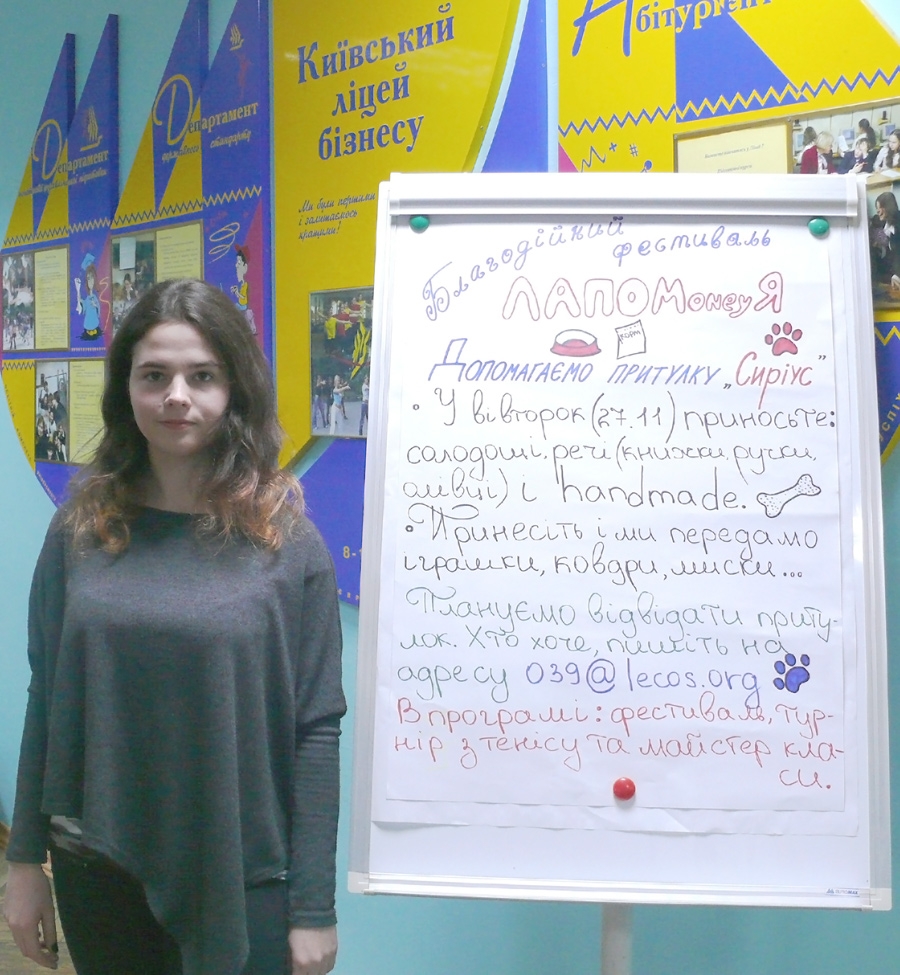 Департамент
Департамент
Київський
ліцей
бізнесу
Ми були першими
і залишаємось
кращими!
Абітурієнт
Благодійний
фестиваль
ЛАПОМoneyЯ
КОРМ
Допомагаємо притулку „Сиріус"
• У вівторок (27.11) приносьте:
солодощі, речі (книжки, ручки,
олівці) і handmade.
• Принесіть і ми передамо
іграшки, ковдри, миски...
Плануємо відвідати приту-
лок. Хто хоче, пишіть на
адресу 039@lecos.org
В програмі: фестиваль, тур-
нір з тенісу та майстер кла-
си.